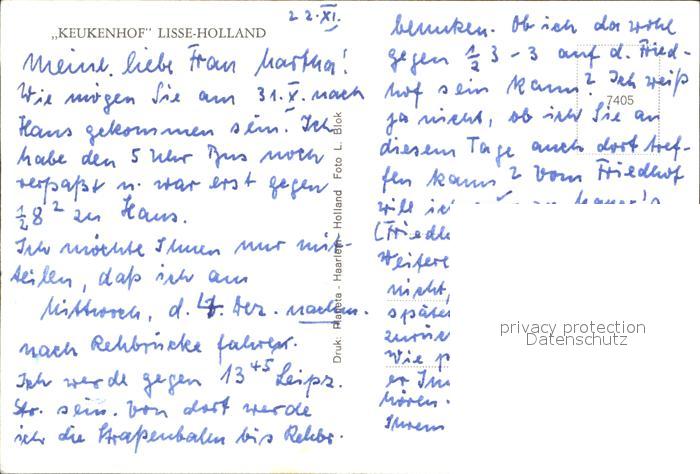 22. XI.
„KEUKENHOF" LISSE-HOLLAND
Meine liebe Frau Martha!
Wie mögen Sie am 31. X. nach
Haus gekommen sein. Ich
habe den 5 Uhr Bus noch
verpaßt u. war erst gegen
½ 8² zu Haus.
Ich möchte Ihnen nur mit-
teilen, daß ich am
Mittwoch, d. 4. Dez. nachm.
nach Rehbrücke fahre.
Ich werde gegen 13⁴⁵ Leipz.
Str. sein. Von dort werde
ich die Straßenbahn bis Rehbr.
Druk: Planeta - Haarlem - Holland Foto L. Blok
benutzen. Ob ich da wohl
gegen ½ 3 - 3 auf d. Fried-
hof sein kann? Ich weiß
7405
ja nicht, ob ich Sie an
diesem Tage auch dort tref-
fen kann? Vom Friedhof
will ich
(Friedh
Weitere
nicht,
später
zurück
Wie
er Ihn
hören.
Ihrem
privacy protection
Datenschutz